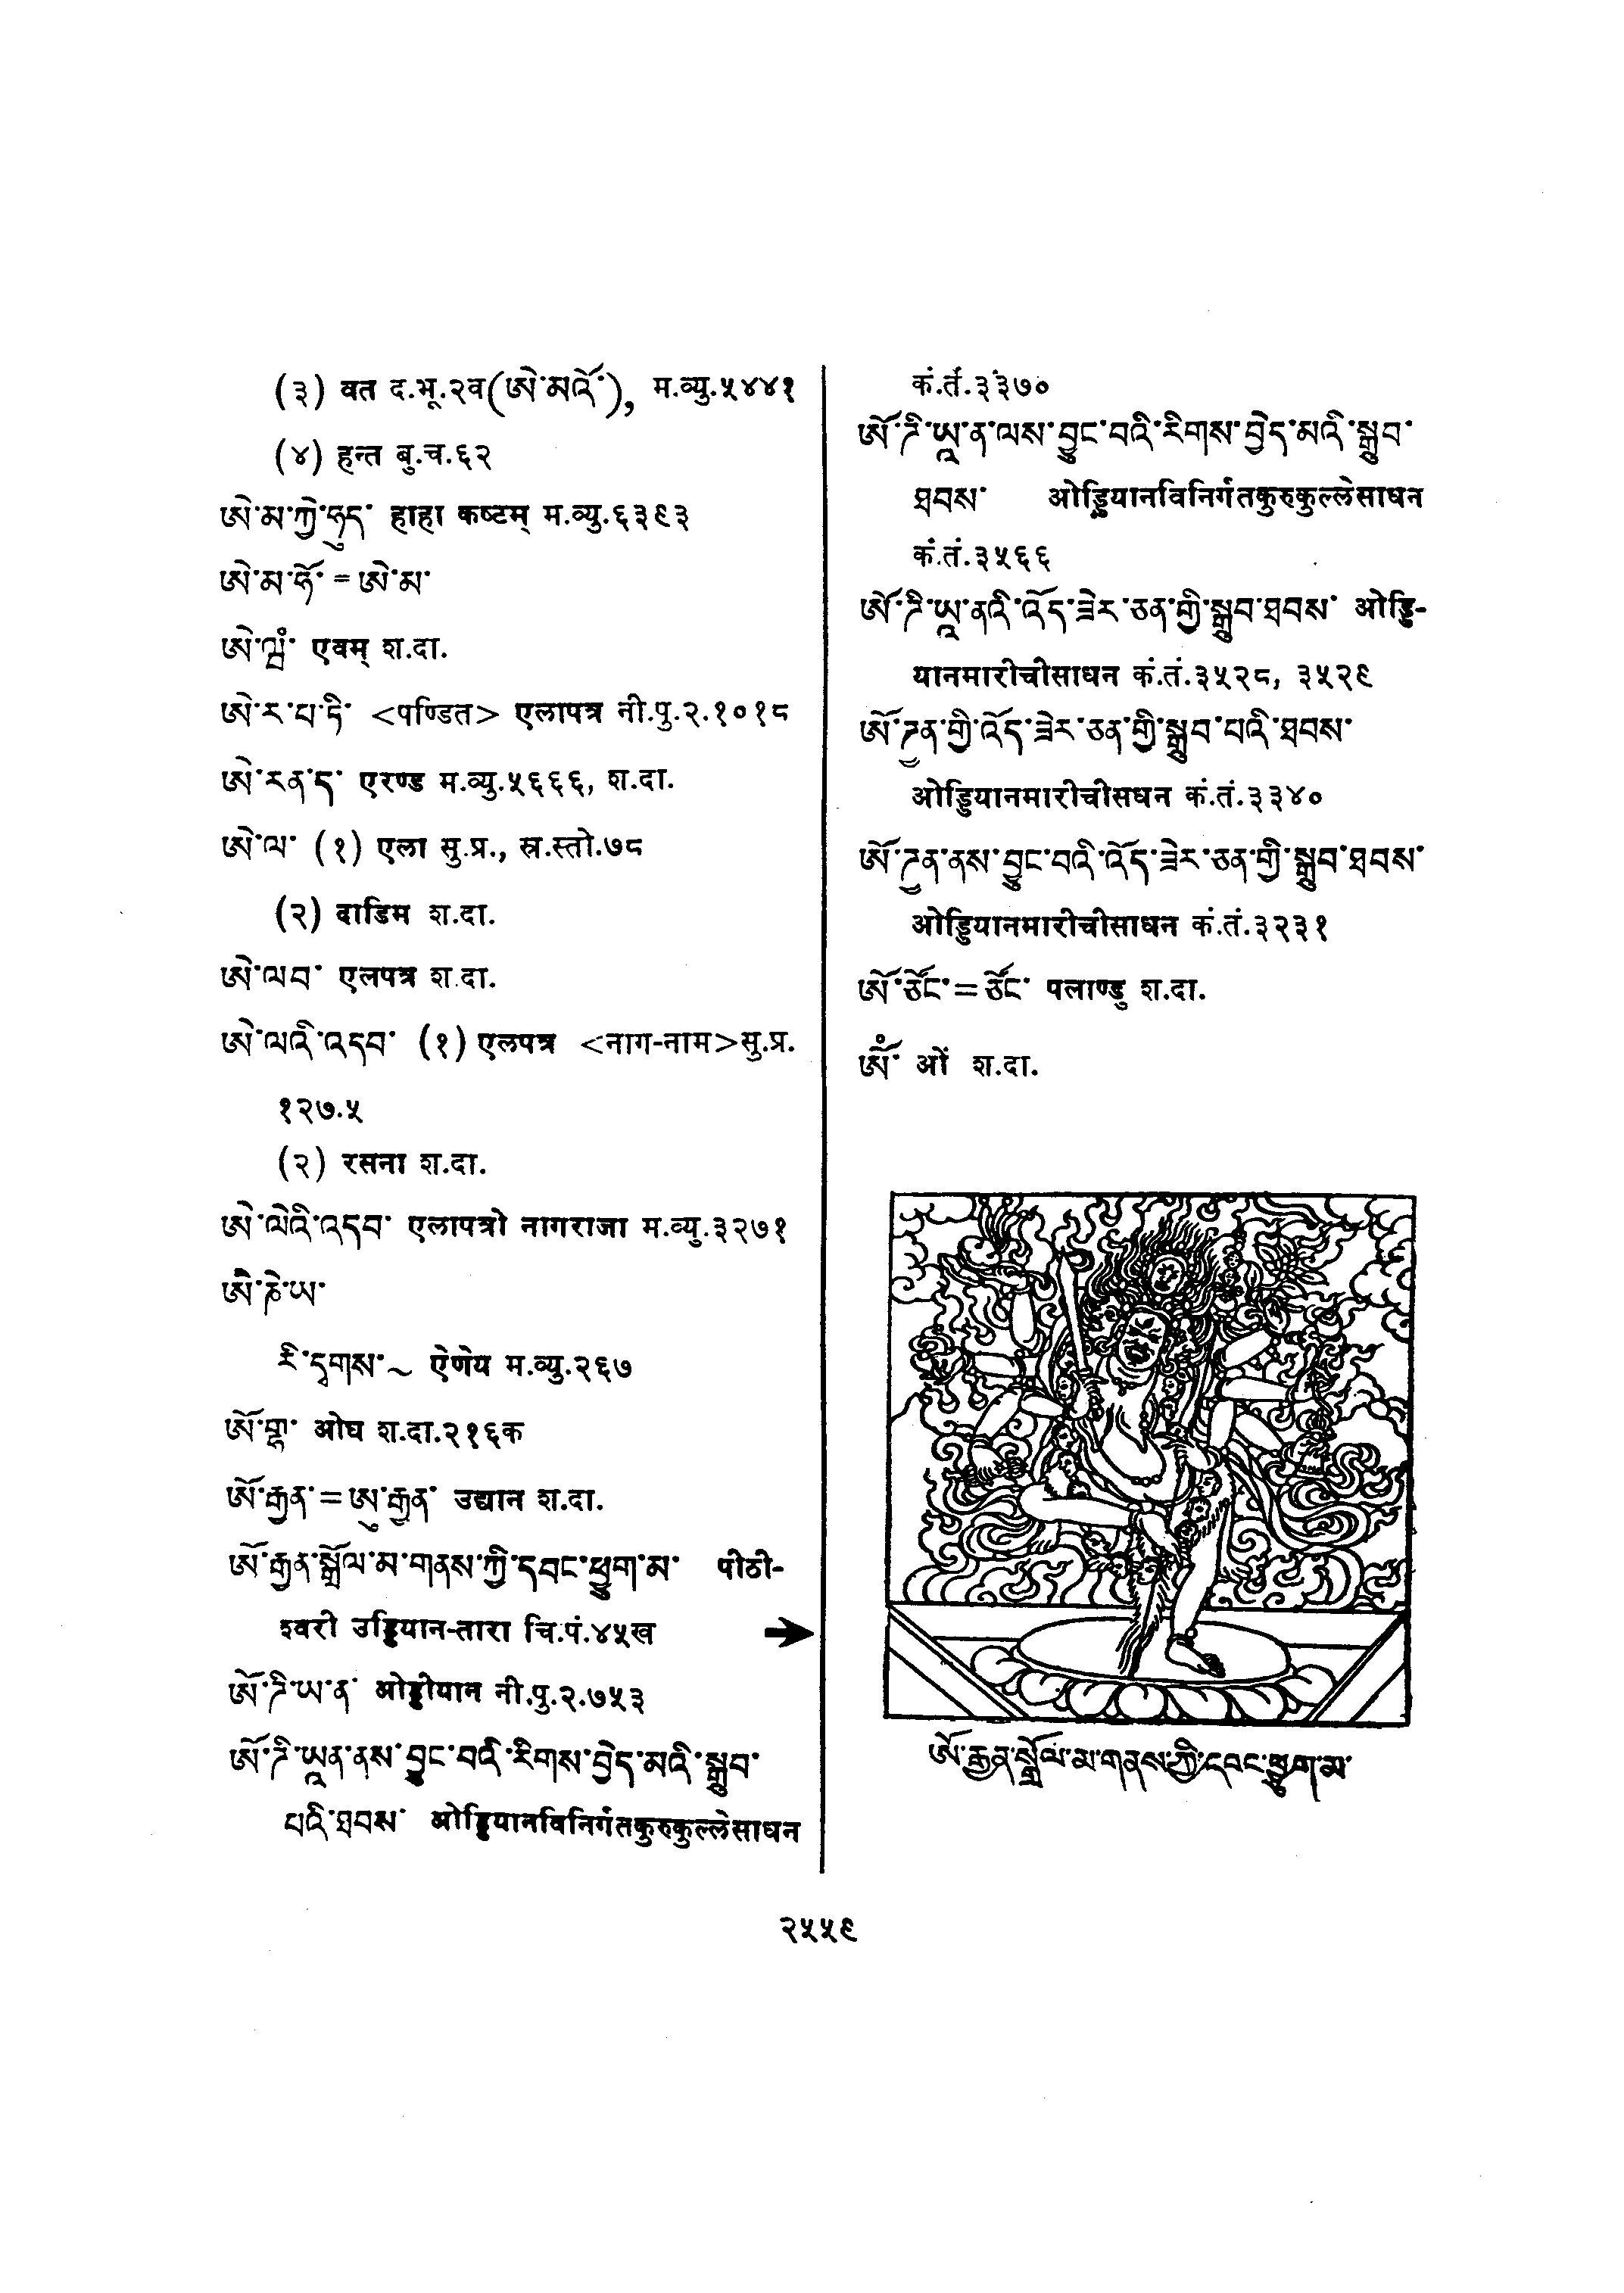 (३) वत द.भू.२व(ཨེ་མའོ་), म.व्यु.५४४१
(४) हन्त बु.च.६२
ཨེ་མ་ཀྱེ་ཧུད་ हाहा कष्टम् म.व्यु.६३९३
ཨེ་མ་ཧོ་ = ཨེ་མ་
ཨེ་ཝཾ་ एवम् श.दा.
ཨེ་ར་པ་ཏི་ <पण्डित> एलापत्र नी.पु.२.१०१८
ཨེ་རན་ད་ एरण्ड म.व्यु.५६६६, श.दा.
ཨེ་ལ་ (१) एला सु.प्र., स्र.स्तो.७८
(२) दाडिम श.दा.
ཨེ་ལབ་ एलपत्र श.दा.
ཨེ་ལའི་འདབ་ (१) एलपत्र <नाग-नाम>सु.प्र.
१२७.५
(२) रसना श.दा.
ཨེ་ལེའི་འདབ་ एलापत्रो नागराजा म.व्यु.३२७१
ཨཻ་ཎེ་ཡ་
རི་དྭགས་~ ऐणेय म.व्यु.२६७
ཨོ་གྷ་ ओघ श.दा.२१६क
ཨོ་རྒྱན་=ཨུ་རྒྱན་ उद्यान श.दा.
ཨོ་རྒྱན་སྒྲོལ་མ་གནས་ཀྱི་དབང་ཕྱུག་མ་ पीठी-
श्वरी उड्डियान-तारा चि.पं.४५ख ➔
ཨོ་ཌི་ཡ་ན་ ओड्डीयान नी.पु.२.७५३
ཨོ་ཌི་ཡཱན་ནས་བྱུང་བའི་རིགས་བྱེད་མའི་སྒྲུབ་
པའི་ཐབས་ ओड्डियानविनिर्गतकुरुकुल्लेसाधन
कं.तं.३३७०
ཨོ་ཌི་ཡཱ་ན་ལས་བྱུང་བའི་རིགས་བྱེད་མའི་སྒྲུབ་
ཐབས་ ओड्डियानविनिर्गतकुरुकुल्लेसाधन
कं.तं.३५६६
ཨོ་ཌི་ཡཱ་ནའི་འོད་ཟེར་ཅན་གྱི་སྒྲུབ་ཐབས་ ओड्डि-
यानमारीचीसाधन कं.तं.३५२८, ३५२९
ཨོ་ཌྱན་གྱི་འོད་ཟེར་ཅན་གྱི་སྒྲུབ་པའི་ཐབས་
ओड्डियानमारीचीसधन कं.तं.३३४०
ཨོ་ཌྱན་ནས་བྱུང་བའི་འོད་ཟེར་ཅན་གྱི་སྒྲུབ་ཐབས་
ओड्डियानमारीचीसाधन कं.तं.३२३१
ཨོ་ཙོང་=ཙོང་ पलाण्डु श.दा.
ཨོཾ་ ओं श.दा.
ཨོ་རྒྱན་སྒྲོལ་མ་གནས་ཀྱི་དབང་ཕྱུག་མ་
२५५९